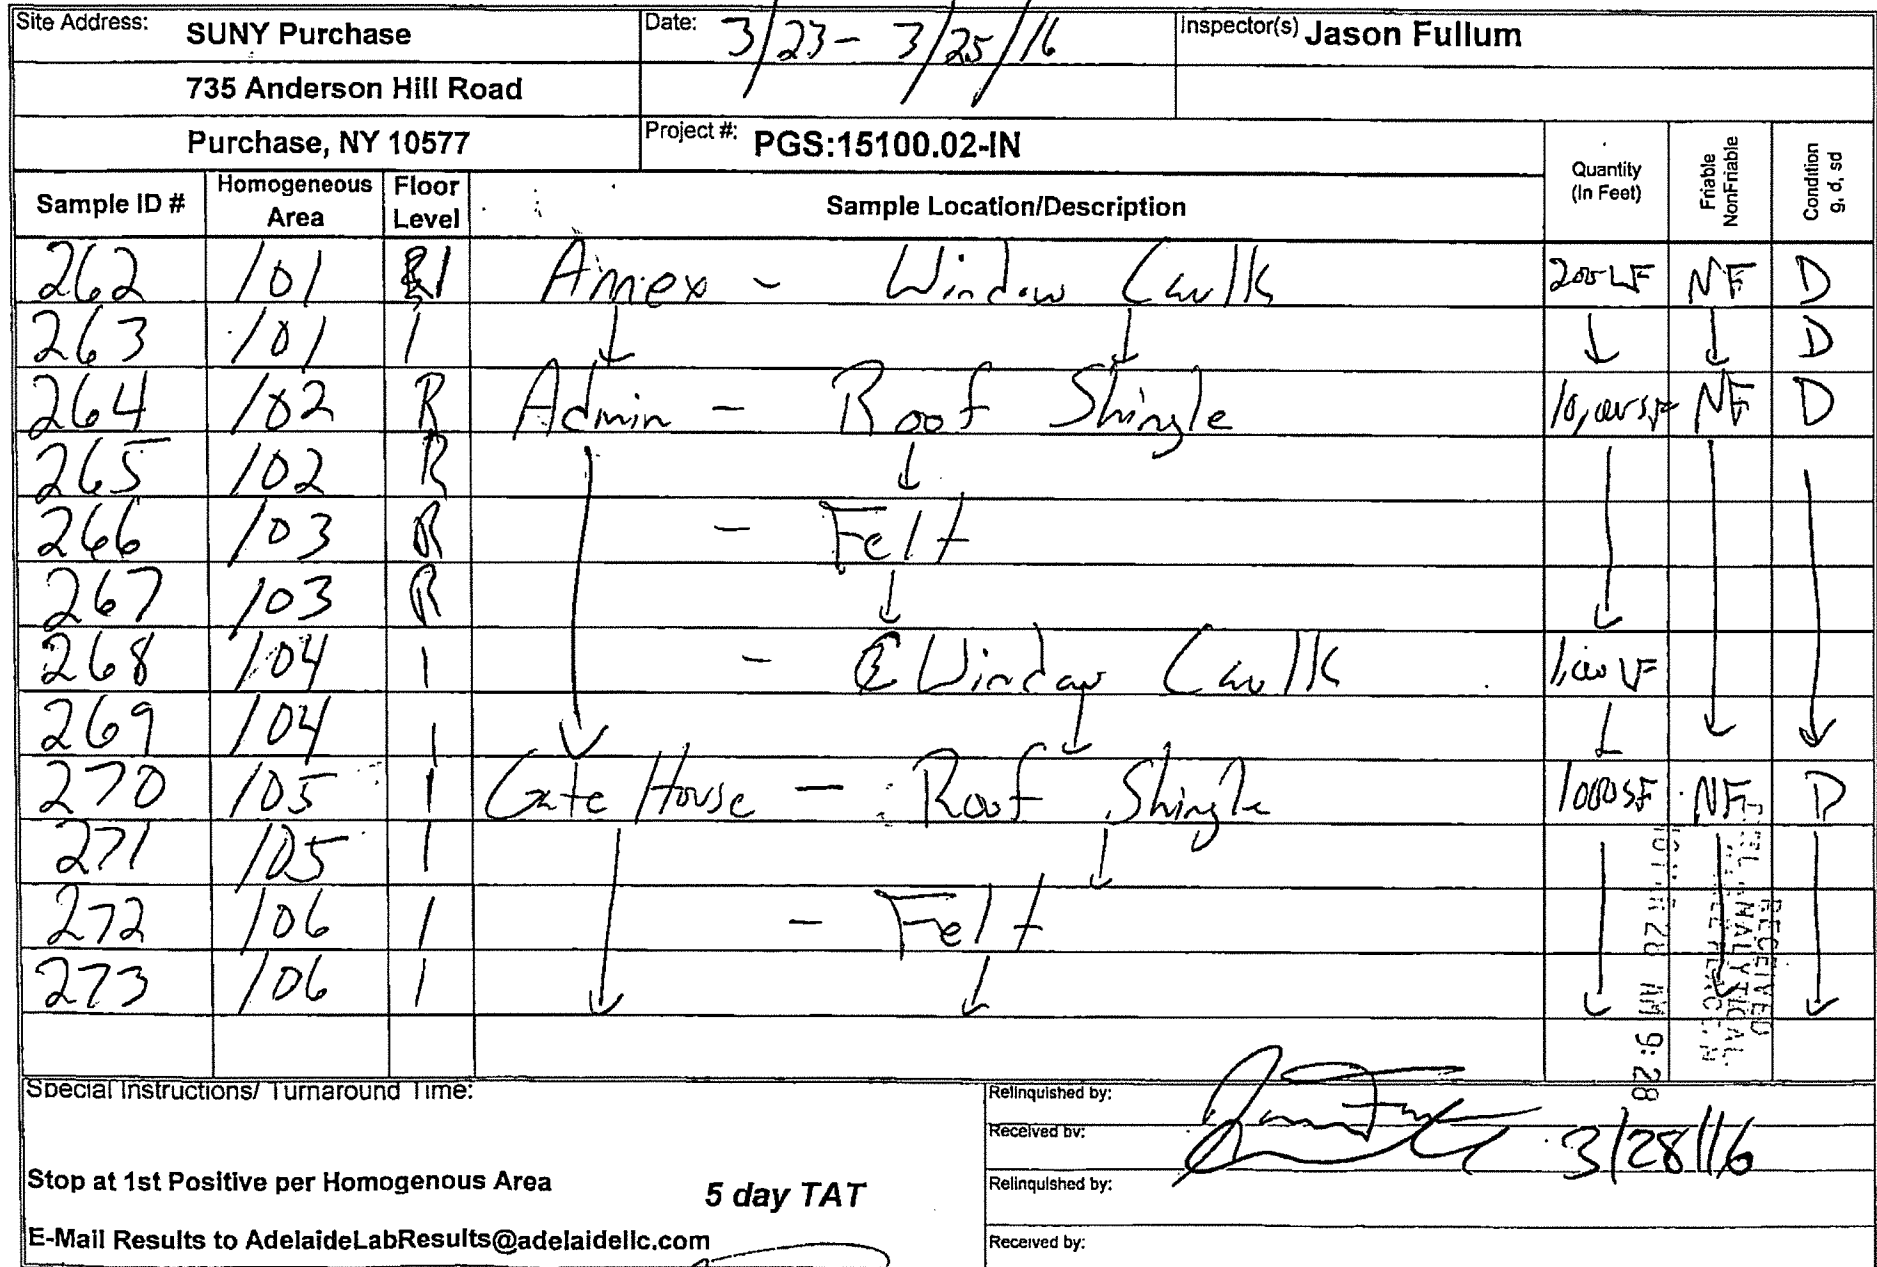 Site Address: SUNY Purchase Date: 3/23 - 3/25/16 Inspector(s) Jason Fullum
735 Anderson Hill Road
Purchase, NY 10577 Project #: PGS:15100.02-IN
Sample ID # Homogeneous Area Floor Level Sample Location/Description Quantity (In Feet) Friable NonFriable Condition g, d, sd
262 101 1 Annex - Window Caulk 200 LF NF D
263 101 1 ↓ ↓ ↓ ↓ D
264 102 R Admin - Roof Shingle 10,000 SF NF D
265 102 R ↓
266 103 R - Felt
267 103 R ↓
268 104 1 - Window Caulk 1,000 LF
269 104 1 ↓ ↓ ↓ ↓ ↓
270 105 1 Gate House - Roof Shingle 1000 SF NF D
271 105 1 ↓
272 106 1 - Felt
273 106 1 ↓ ↓ ↓ ↓ ↓
RECEIVED
ANALYTICAL
28 AM 9:28
Special Instructions/ Turnaround Time:
Stop at 1st Positive per Homogenous Area 5 day TAT
E-Mail Results to AdelaideLabResults@adelaidellc.com
Relinquished by:
Received by: 3/28/16
Relinquished by:
Received by: